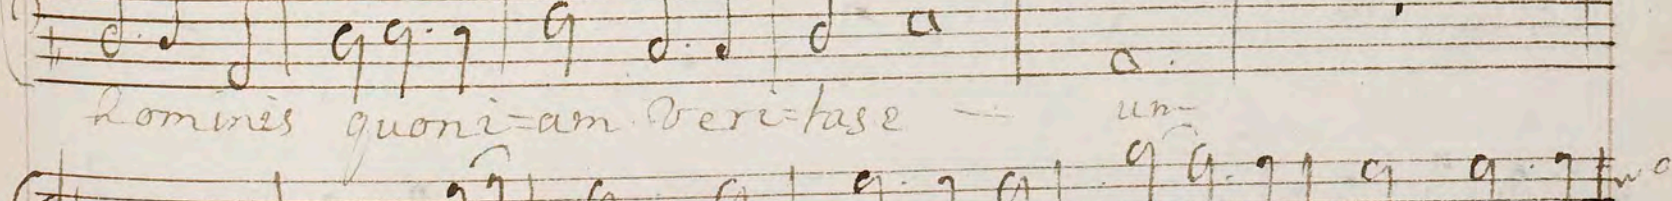 hominis quoni=am veri=tase — un-